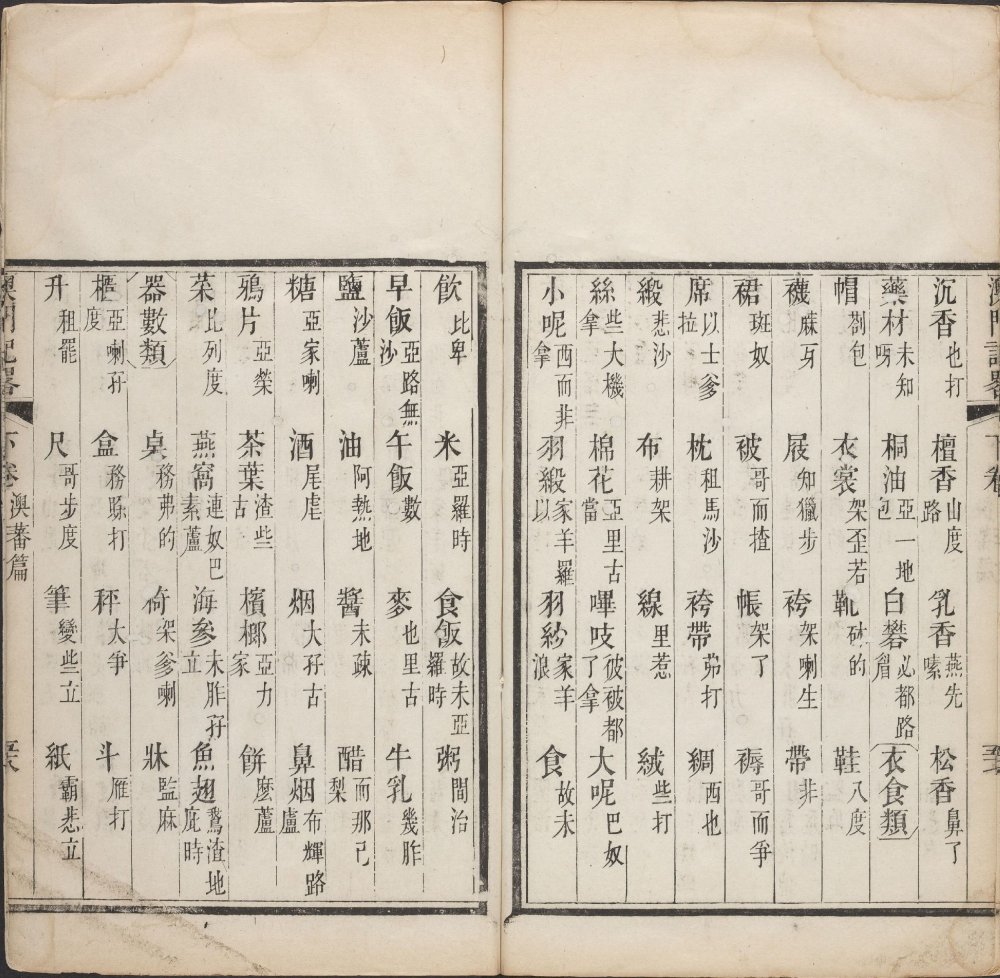 澳門記畧 下卷
沉香也打 檀香山度路 乳香燕先嗦 松香鼻了
藥材未知呀 桐油亞一地包 白礬必都路眉 衣食類
帽劄包 衣裳架歪若 靴砵的 鞋八度
襪麻牙 屐知獵步 袴架喇生 帶非
裙班奴 被哥而揸 帳架了 褥哥而爭
席以士爹拉 枕租馬沙 袴帶茀打 綢西也
緞悲沙 布耕架 線里惹 絨些打
絲些大機拿 棉花亞里古當 嗶吱彼被都了拿 大呢巴奴
小呢西而非拿 羽緞家羊羅以 羽紗家羊浪 食故未
飲比卑 米亞羅時 食飯故未亞羅時 粥間治
早飯亞路無沙 午飯數 麥也里古 牛乳幾胙
鹽沙蘆 油阿熱地 醬未疎 醋而那已梨
糖亞家喇 酒尾虐 烟大孖古 鼻烟布輝路盧
鴉片亞榮 茶葉渣些古 檳榔亞力家 餅麼蘆
菜比列度 燕窩連奴巴素蘆 海參未胙孖立 魚翅鵞渣地庇時
器數類 桌務弗的 椅架爹喇 牀監麻
櫃亞喇孖度 盒務賒打 秤大爭 斗雁打
升租罷 尺哥步度 筆變些立 紙霸悲立
澳門記畧 下卷 澳蕃篇